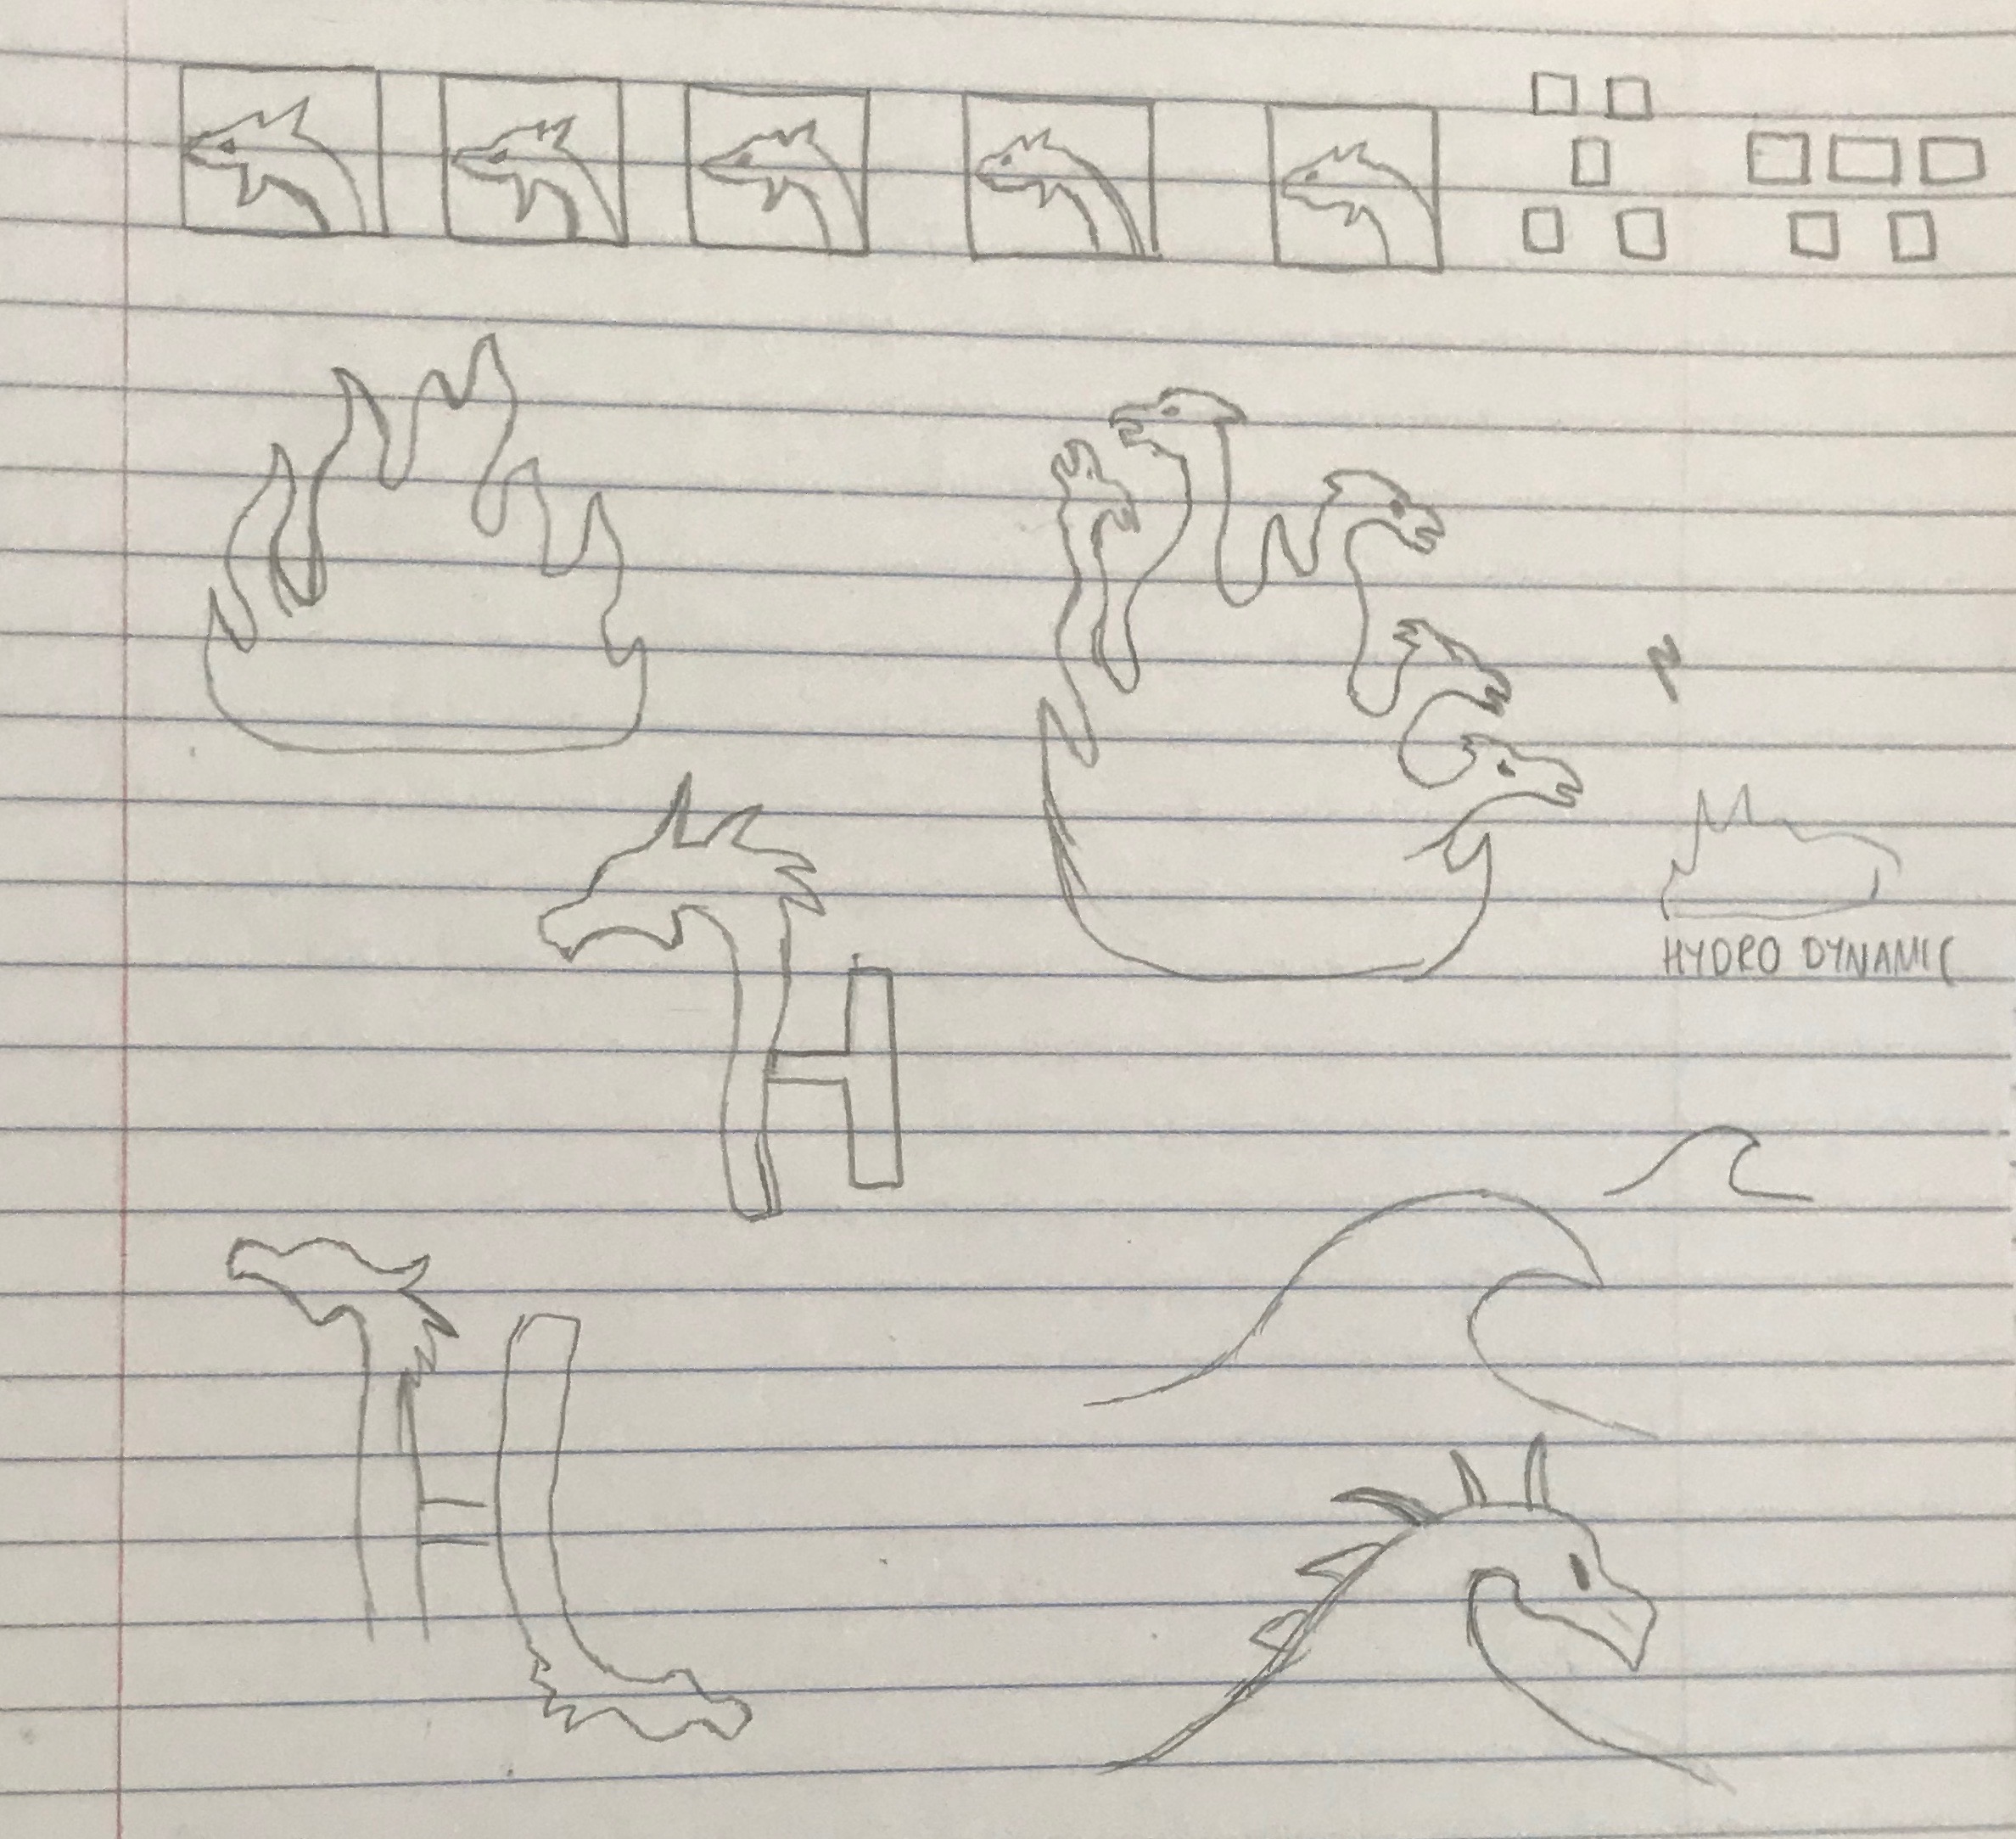 H
HYDRO DYNAMIC
H